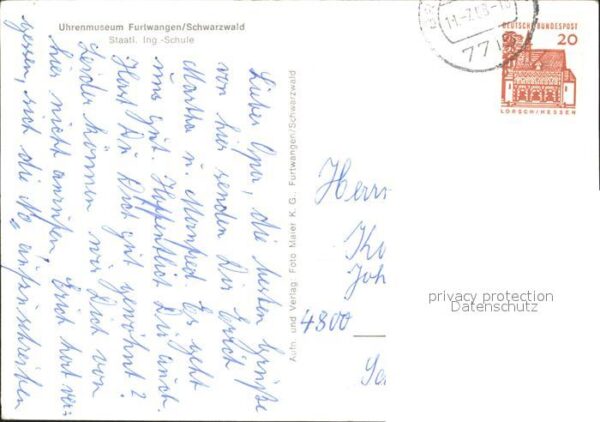 Uhrenmuseum Furtwangen/Schwarzwald
Staatl. Ing.-Schule
Lieber Opa, die besten Grüße
von hier senden Dir Erich
Martha u. Manfred. Es geht
uns gut. Hoffentlich Dir auch.
Hast Du Dich gut gewöhnt?
Leider können wir Dich von
hier nicht anrufen. Erich hat ver-
gessen, sich die No. aufzuschreiben
Aufn. und Verlag: Foto Maier K. G., Furtwangen/Schwarzwald
DEUTSCHE BUNDESPOST
20
LORSCH/HESSEN
77
Herrn
Ko
Joh
4800
privacy protection
Datenschutz